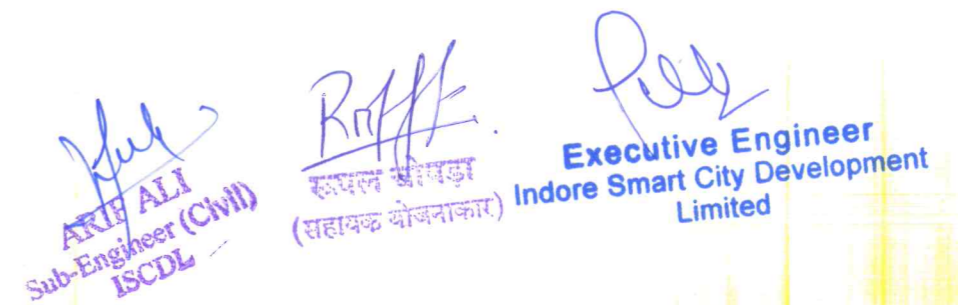 ARIF ALI
Sub-Engineer (Civil)
ISCDL
रूपल चोपड़ा
(सहायक योजनाकार)
Executive Engineer
Indore Smart City Development
Limited